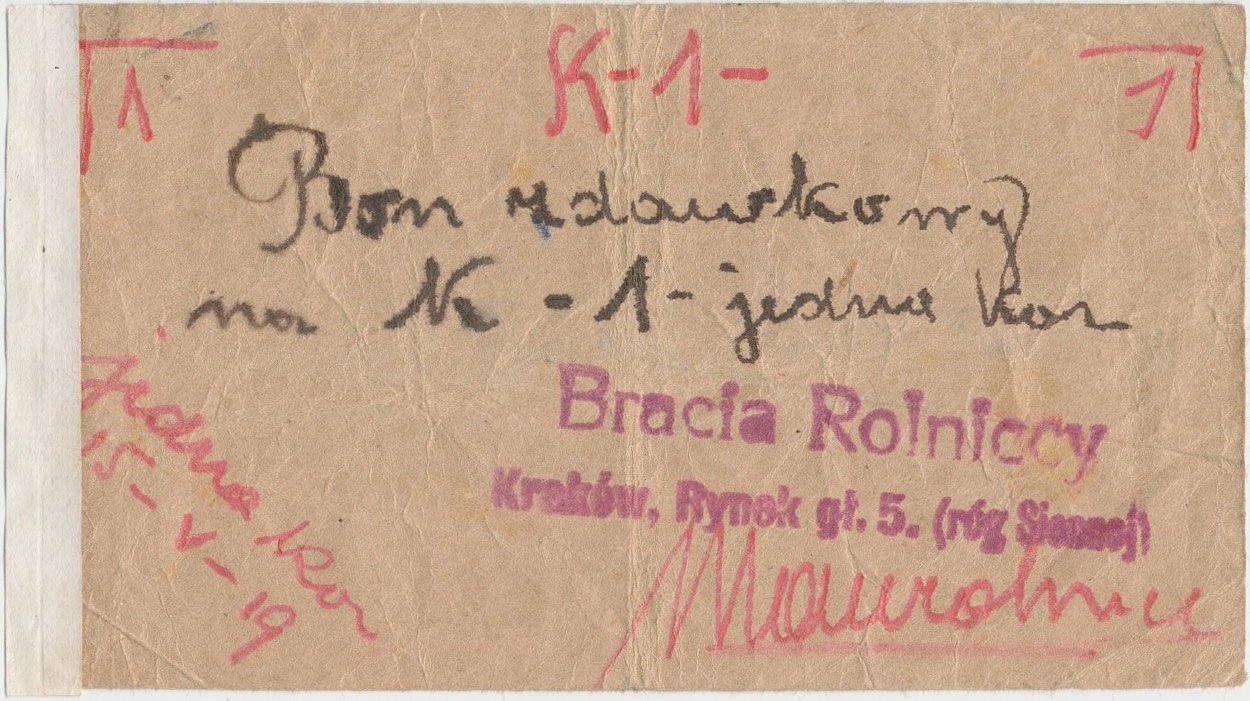 1 K-1- 1
Bon zdawkowy
na K-1- jedna kor
Jedna kor
15-V-19
Bracia Rolniccy
Kraków, Rynek gł. 5. (róg Siennej)